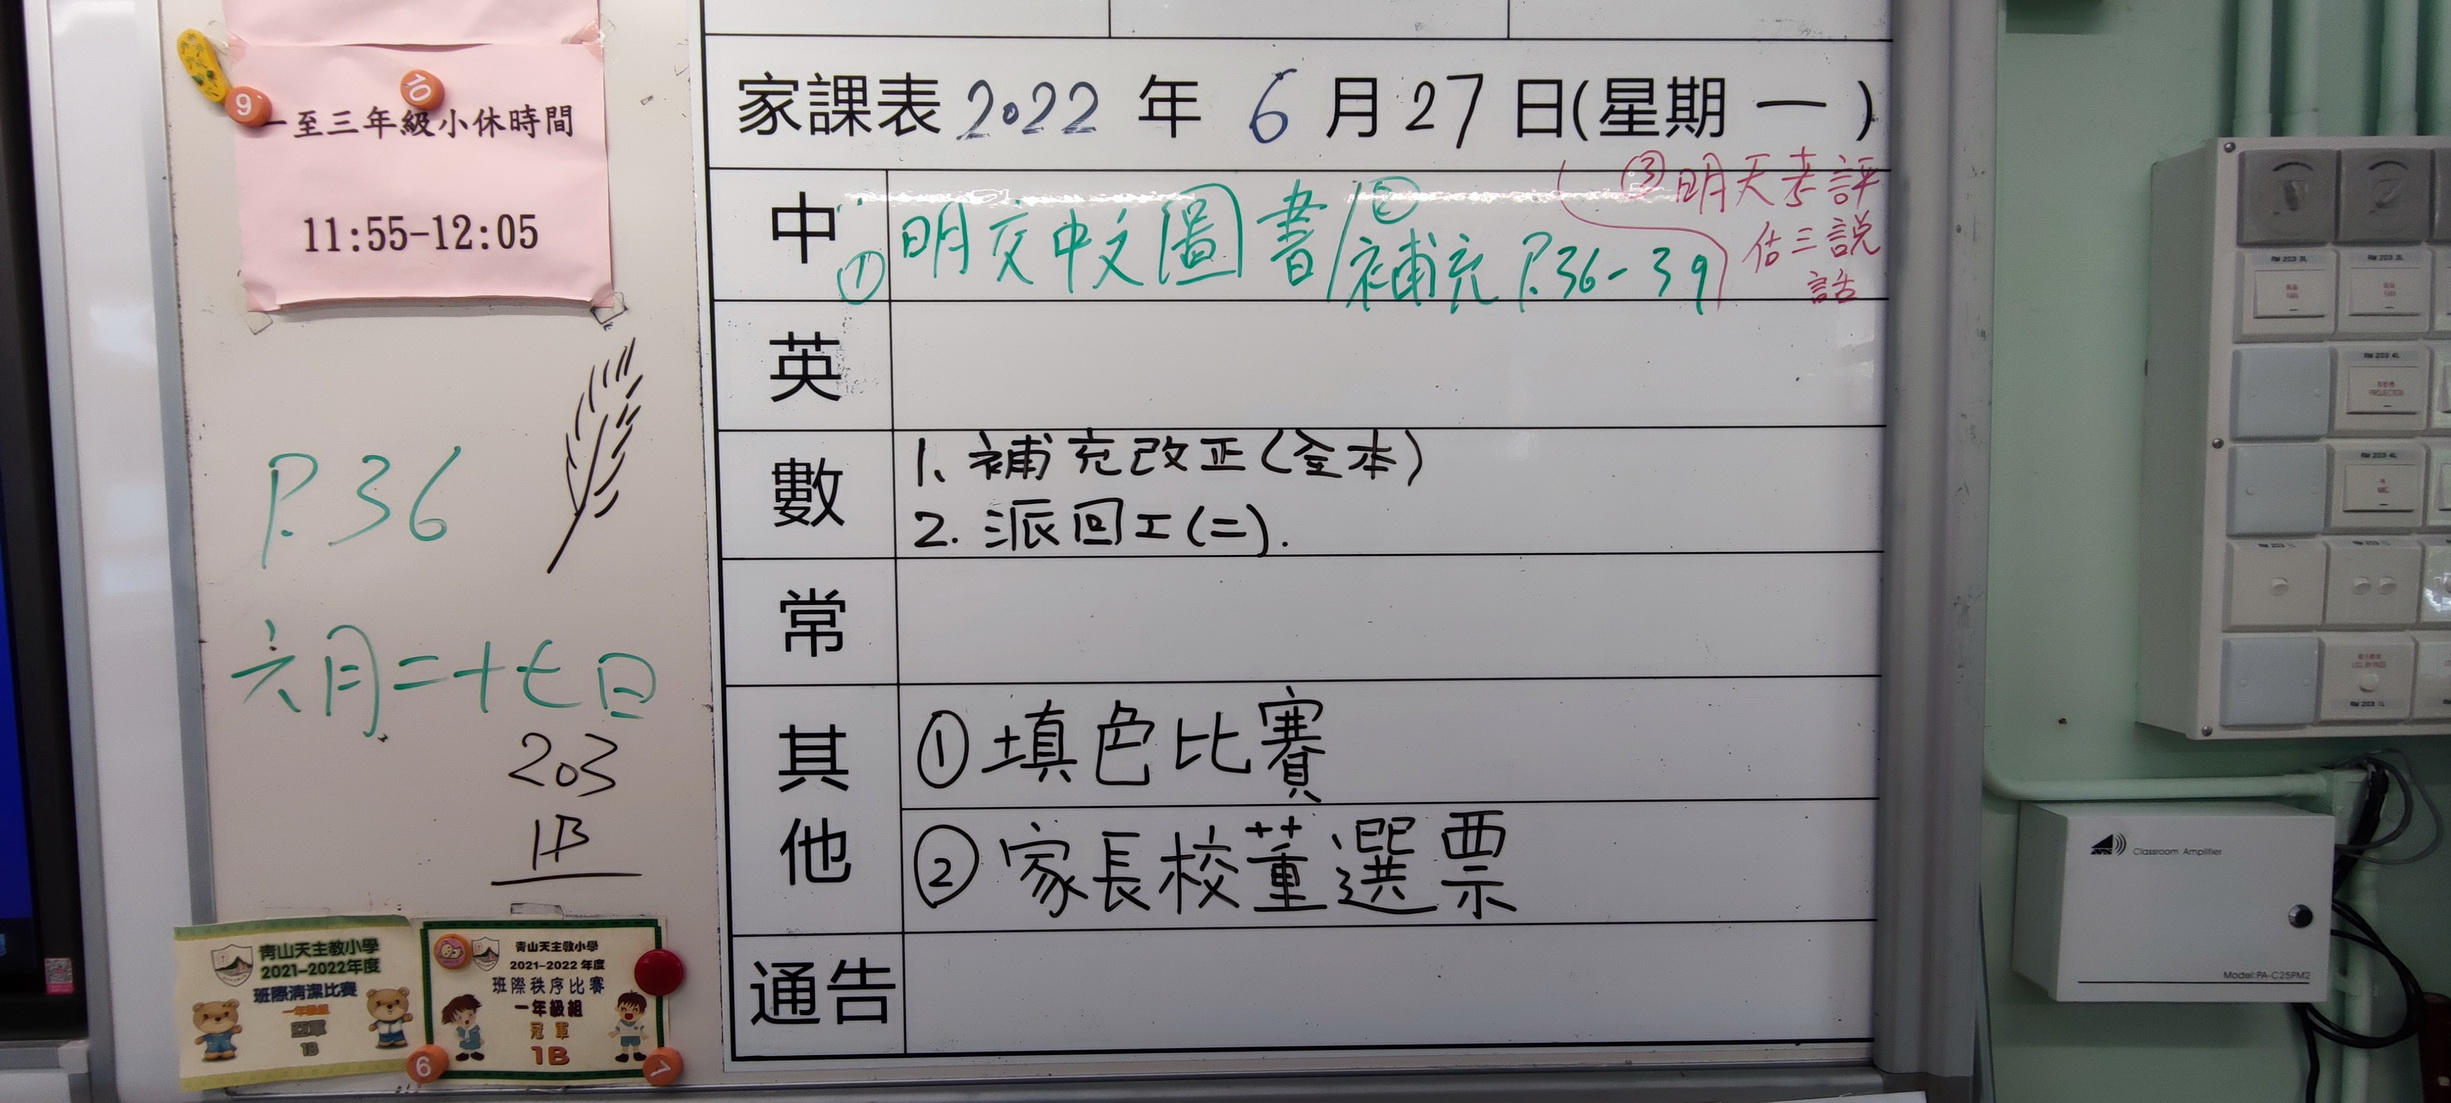 一至三年級小休時間
11:55-12:05
9
10
P.36
六月二十七日
203
1B
青山天主教小學
2021-2022年度
班際清潔比賽
一年級組
亞軍
1B
青山天主教小學
2021-2022年度
班際秩序比賽
一年級組
冠軍
1B
6
7
家課表 2022 年 6 月 27 日(星期 一 )
中 ①明交中文圖書/②補充 P.36-39
③明天考評
估三說
話
英
數
1. 補充改正(全本)
2. 派回工(二).
常
其他
①填色比賽
②家長校董選票
通告
RM 203 3L
RM 203 2L
RM 203 4L
PROJECTOR
RM 203 4L
MIC
RM 203 1L
Classroom Amplifier
Model:PA-C25PM2